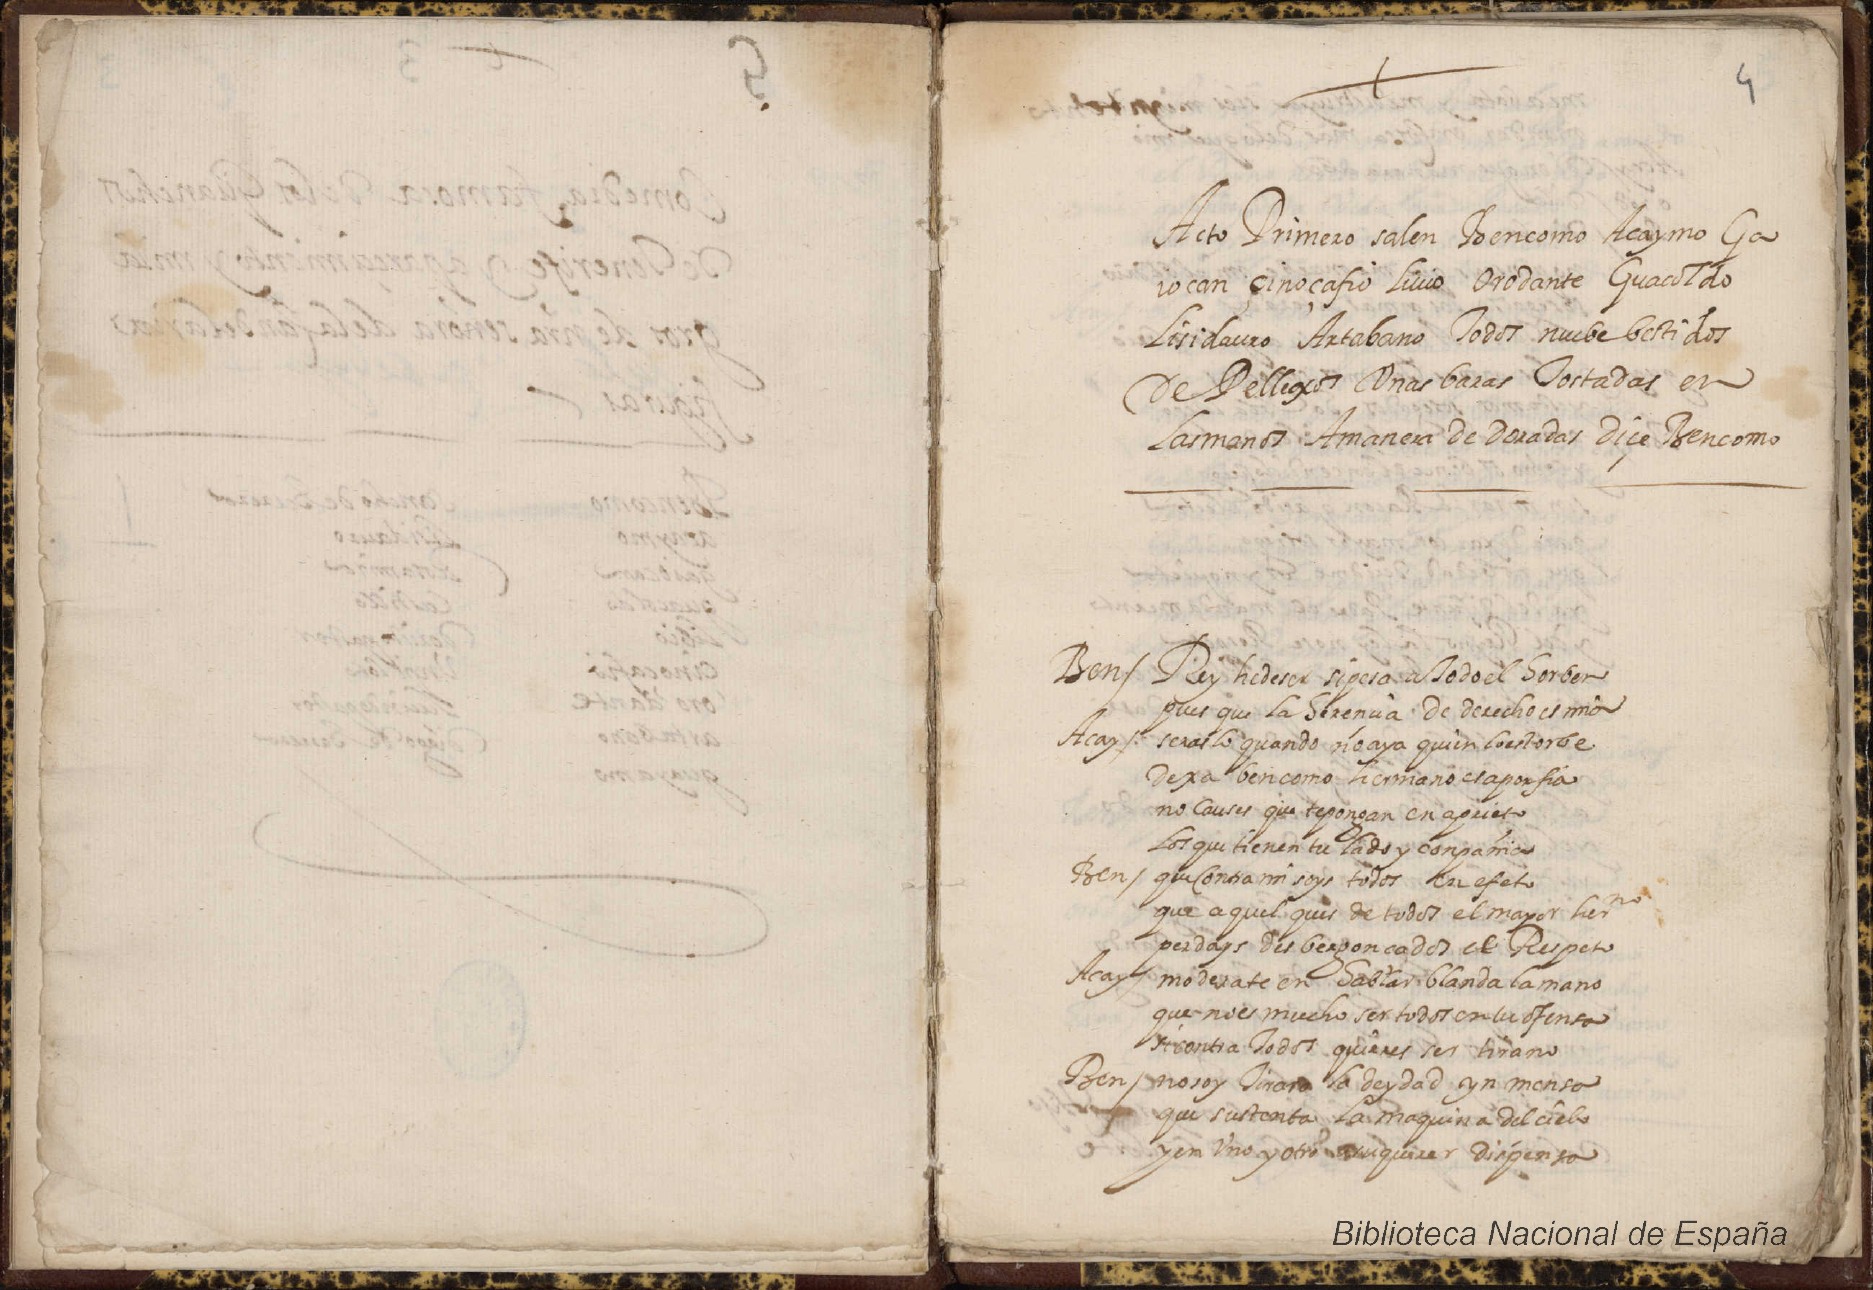 4
Acto Primero salen Bencomo Acaymo Ga
iocan çinoçafio Livio Orodante Guacoldo
Lisidauro Artabano Todos nuebe bestidos
De Pellexos Unas baras Tostadas en
Las manos Amanera de Doradas Diçe Bencomo
Ben/ Rey he de ser si pesa a Todo el horbe
pues que la herençia de derecho es mia
Acay/ seraslo quando no aya quien lo estorbe
dexa bencomo hermano esa porfia
no Causes que te pongan en aprieto
Los que tienen tu lado y conpañia
Ben/ que Contra mi soys todos en efeto
que aquel ques de todos el mayor herno
perdays desbergonçados el Respeto
Acay/ moderate en hablar blanda la mano
que no es mucho ser todos en tu ofensa
si contra Todos quieres ser tirano
Ben/ no soy Tirano la deydad ynmensa
que sustenta La maquina del cielo
y en Uno y otro su querer dispensa
Biblioteca Nacional de España